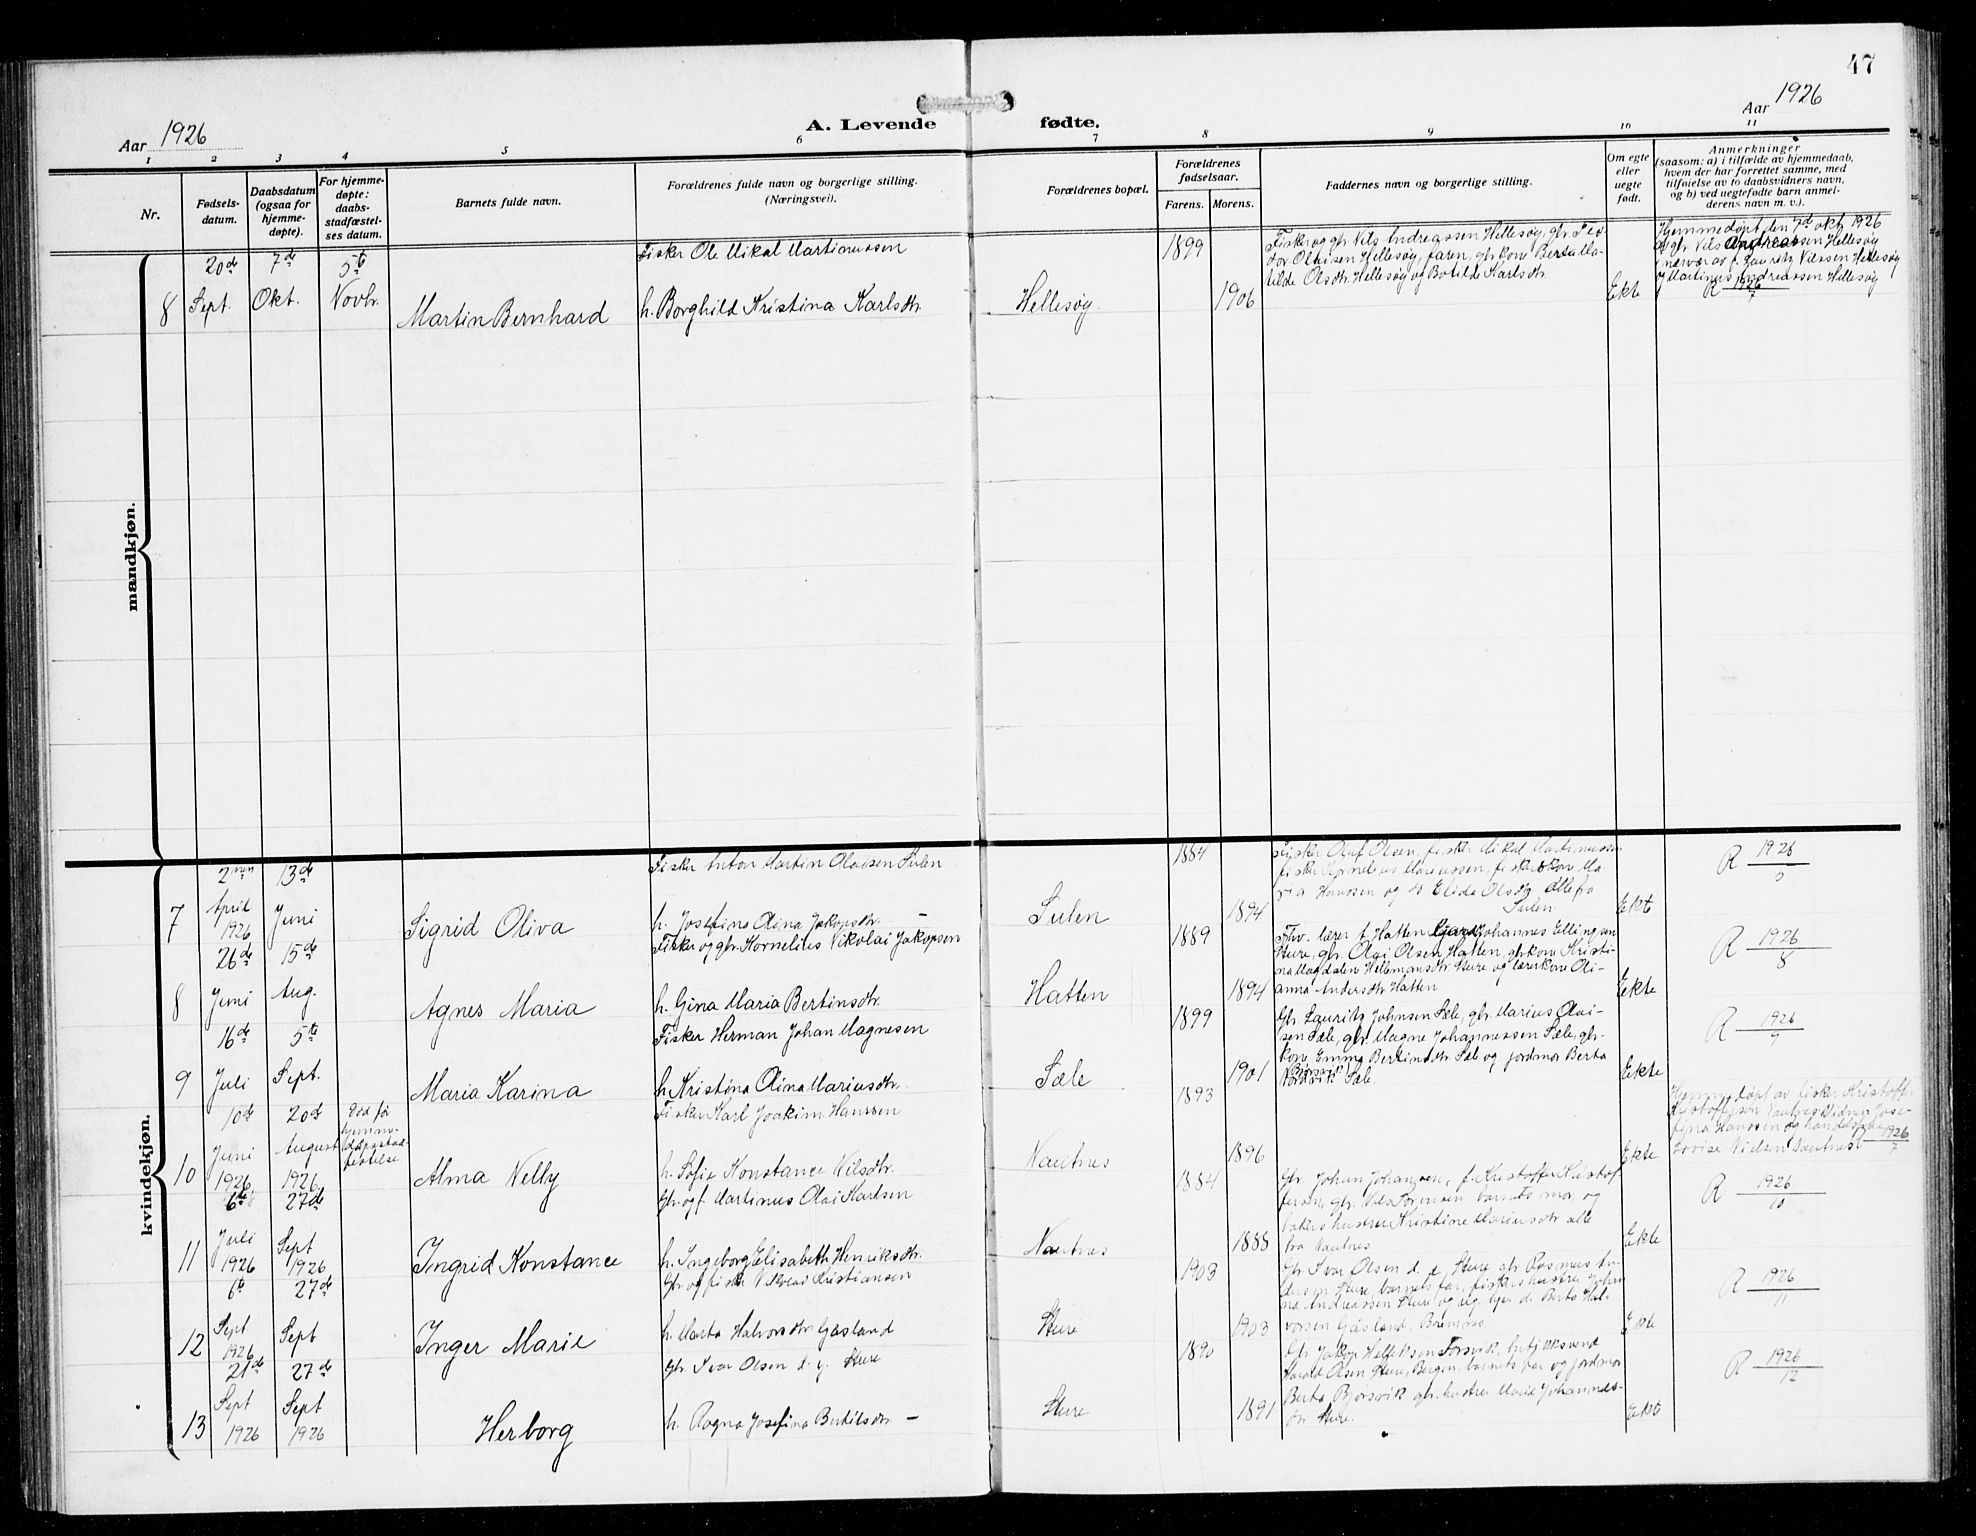 47
Aar 1926
A. Levende fødte.
Aar 1926
1 2 3 4 5 6 7 8 9 10 11
Nr.
Fødsels-
datum.
Daabsdatum
(ogsaa for
hjemme-
døpte).
For hjemme-
døpte:
daabs-
stadfæstel-
ses datum.
Barnets fulde navn.
Forældrenes fulde navn og borgerlige stilling.
(Næringsvei).
Forældrenes bopæl.
Forældrenes
fødselsaar.
Farens. Morens.
Faddernes navn og borgerlige stilling.
Om egte
eller
uegte
født.
Anmerkninger
(saasom: a) i tilfælde av hjemmedaab,
hvem der har forrettet samme, med
tilføielse av to daabsvidners navn,
og b) ved uegtefødte barn anmel-
derens navn m. v.).
mandkjøn.
8
20de
Sept.
7de
Okt.
5te
Novbr.
Martin Bernhard
Fisker Ole Mikal Martinussen
h. Borghild Kristina Karlsdtr.
Hellesøy.
1899
1906
Fisker og gbr. Nils Andreassen Hellesøy, gbr. Teo-
dor Olaisen Hellesøy, faren, gbrkone Berta Ma-
tilde Olsdtr. Hellesøy og Botilde Karlsdtr.
Ekte
Hjemmedøpt den 7d okt. 1926
av gbr. Nils Andreassen Hellesøy
i nærvær av f. Lauritz Nilssen Hellesøy
og Martinus Andreassen Hellesøy
R 1926/7
kvindekjøn.
7
2nen
April
1926
13de
Juni
Sigrid Oliva
Fisker Anton Martin Olaisen Sulen
h. Josefina Olina Jakopsdtr. –
Sulen
1884
1894
Fisker Oluf Olsen, fisker Mikal Martinussen
fisker Kornelius Mariussen, fiskerkone Ma-
ria Hanssen og Elida Olsdtr. alle fra
Sulen
Ekte
R 1926
8
26de
Juni
15de
Aug.
Agnes Maria
Fisker og gbr. Kornelius Nikolai Jakopsen
h. Gina Maria Bertinsdtr.
Hatten
1889
1894
lærer Hatten Johannes Ellingsen
Sture, gbr. Olai Olsen Hatten, gbrkone Kristi-
na Magdalen Hellemansdtr. Sture og lærerkone Oli-
anna Andersdtr. Hatten
Ekte
R 1926/8
9
16de
Juli
5te
Sept.
Maria Karina
Fisker Herman Johan Magnesen
h. Kristina Olina Mariusdtr.
Sæle
1899
1901
Gbr. Lauritz Johnsen Sæle, gbr. Marius Olai-
sen Sæle, gbr. Magne Johannessen Sæle, gbr-
kone Emma Bertinsdtr. Sæle og jordmor Berta
Bjørsvik Sæle.
Ekte
R 1926/9
10
10de
Juni
1926
20de
August
1926
Død før
hjemme-
daapsstad-
festelse
Alma Nelly
Fisker Karl Joakim Hanssen
h. Sofie Konstance Nilsdtr.
Nautnes
1893
1896
Ekte
Hjemmedøpt av fisker Kristoffer
Kristoffersen Nautnes. Vidner: Jose-
fina Hanssen og
Lovise Nielsen Nautnes. 1926/7
11
6te
Juli
1926
27de
Sept
1926
Ingrid Konstance
Gbr. og f. Martinus Olai Karlsen
h. Ingeborg Elisabeth Henriksdtr.
Nautnes
1884
1888
Gbr. Johan Johansen, f. Kristoffer Kristof-
fersen, gbr. Nils Sørensen, barnets mor, og
hustru Kristine Mariusdtr. alle
fra Nautnes
Ekte
R 1926/10
12
6te
Sept
1926
27de
Sept
1926
Inger Marie
Gbr. og fisker Nikolai Kristiansen
h. Marta Halvorsdtr. Gåsland
Sture
1903
1903
Gbr. Ivar Olsen d. e. Sture, gbr. Rasmus An-
dersen Sture, barnets far, fiskershustru Johan-
na Andreassen Sture og ug. tjen. d. Berta Hal-
vorsen Gåsland, Bremnes.
Ekte
R 1926/11
13
21de
Sept
1926
27de
Sept
1926
Herborg
Gbr. Ivar Olsen d. y. Sture
h. Ragna Josefina Bertilsdtr. –
Sture
1890
1891
Gbr. Jakop Helleksen Forsvik, betj.
Harald Olsen Sture, Bergen, barnets far og jordmor
Berta Bjørsvik, gbr. hustru Marie Johannes-
dtr. Sture.
Ekte
R 1926/12